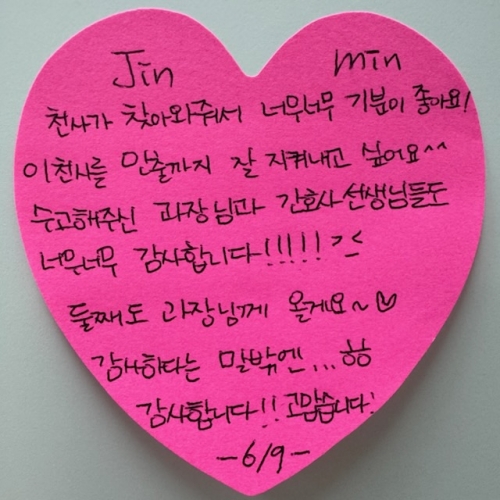 Jin min
천사가 찾아와줘서 너무너무 기분이 좋아요!
이천사를 만출까지 잘 지켜내고 싶어요^^
수고해주신 과장님과 간호사선생님들도
너무너무 감사합니다!!!!! ><
둘째도 과장님께 올게요~♡
감사하다는 말밖엔... ㅎㅎ
감사합니다!! 고맙습니다!
-6/9-